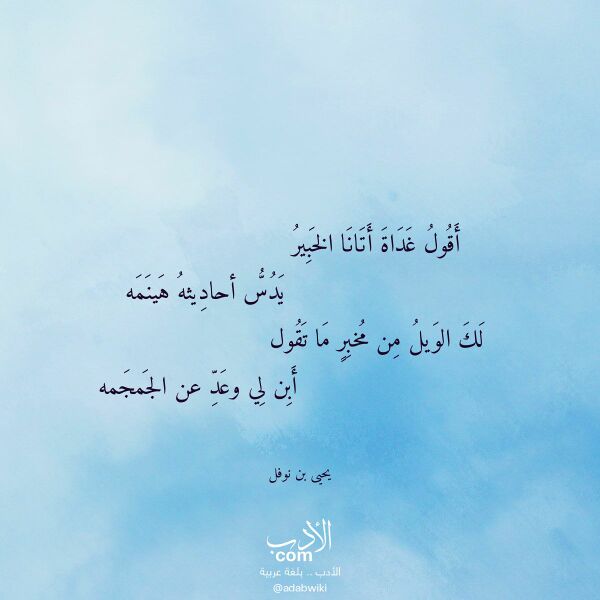 أَقُولُ غَدَاةَ أَتَانَا الخَبِيرُ
يَدُسُّ أحادِيثهُ هَينَمَه
لَكَ الوَيلُ مِن مُخبِرٍ مَا تَقُول
أَبِن لِي وعَدِّ عن الجَمجَمه
يحيى بن نوفل
الأدب
com
الأدب .. بلغة عربية
@adabwiki